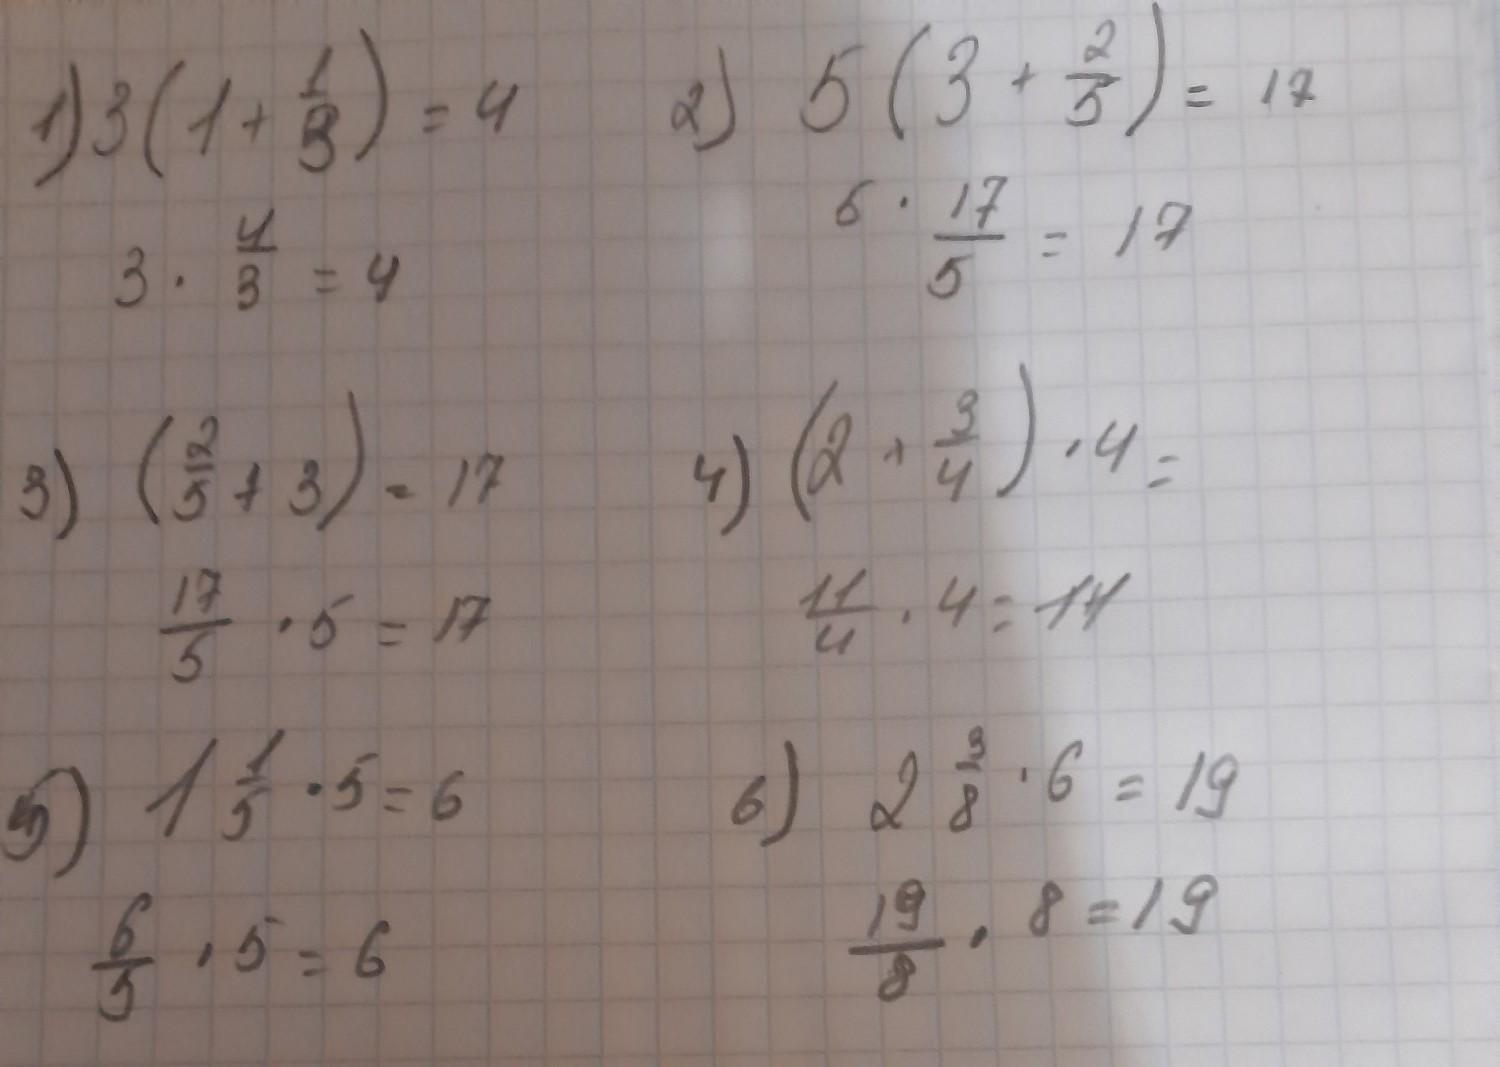 1) 3(1 + 1/3) = 4
3 · 4/3 = 4
2) 5(3 + 2/5) = 17
5 · 17/5 = 17
3) (2/5 + 3) = 17
17/5 · 5 = 17
4) (2 + 3/4) · 4 =
11/4 · 4 = 11
5) 1 1/5 · 5 = 6
6/5 · 5 = 6
6) 2 3/8 · 6 = 19
19/8 · 8 = 19